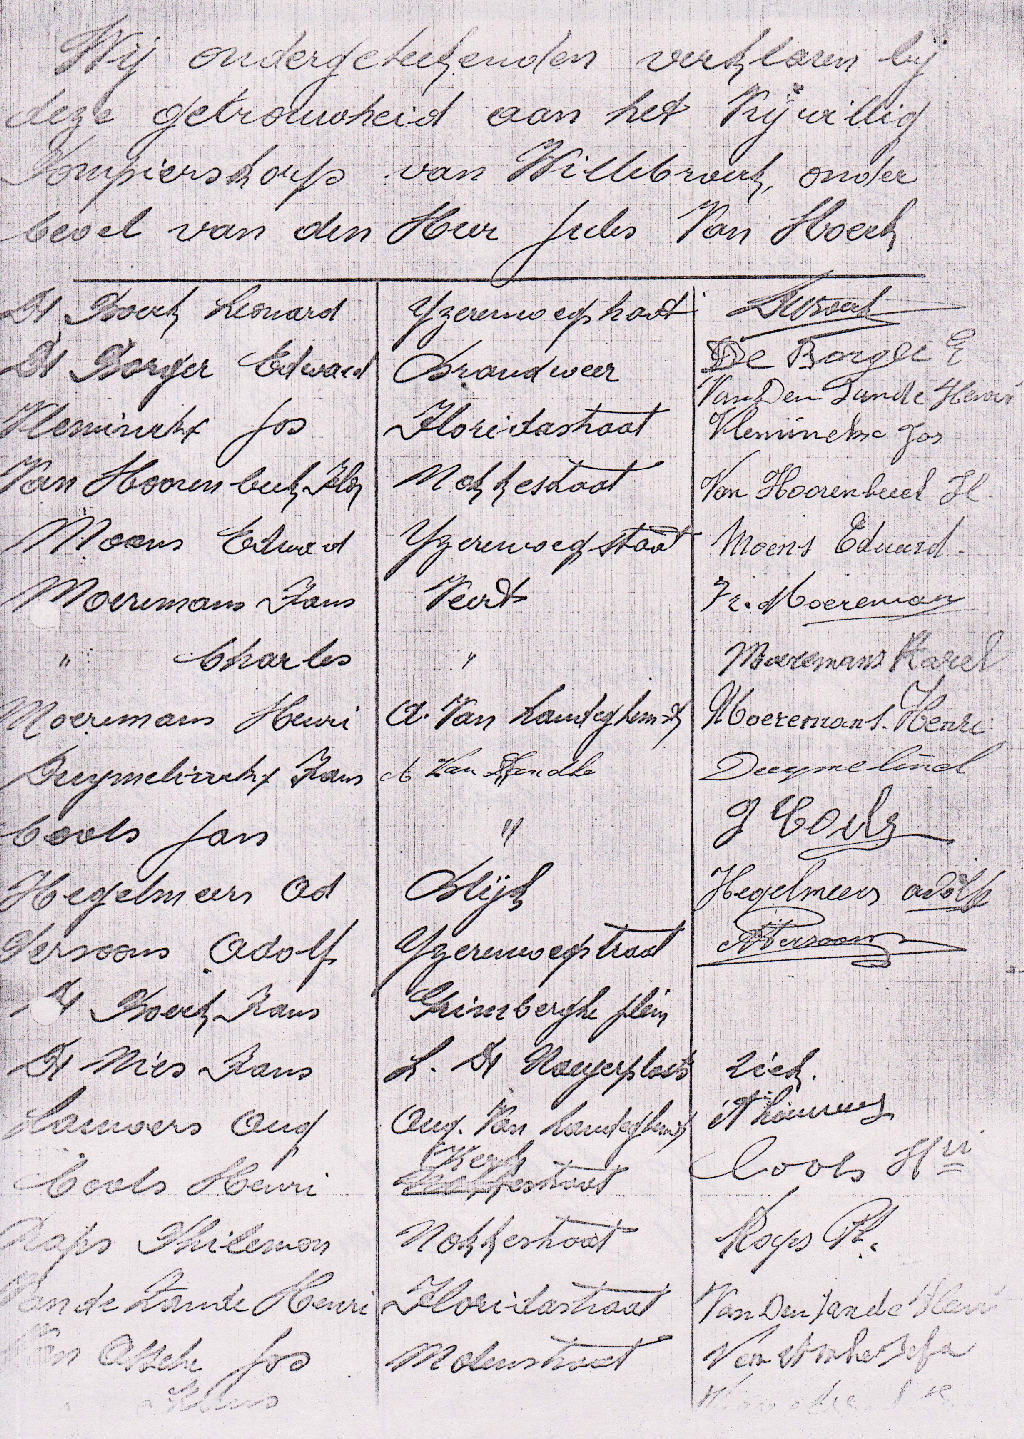 Wij ondergeteekenden verklaren bij
deze getrouwheid aan het Vrijwillig
Pompierskorps van Willebroek, onder
bevel van den Heer Jules Van Hoeck
De Boeck Leonard Yzerenwegstraat
De Borger Edward Brandweer De Borger E
Van Den Zande Henri
Vleminckx Jos Floridastraat Vleminckx Jos
Van Hoorenbeeck Nokkestraat Van Hoorenbeeck Fl.
Moens Edward Yzerenwegstraat Moens Eduard.
Moeremans Frans Veert Fr. Moereman
" Charles " Moeremans Karel
Moeremans Henri A. Van Landeghemst Moeremans. Henri
Duymelinckx Frans
Cools Jan " J Cools
Hegelmeers Ad Blijk Hegelmeers Adolf
Persoons Adolf Yzerenwegstraat Persoons
De Boeck Frans Grimberghe plein
De Nies Frans L. De Naeyerplaats Ziek.
Lauwers Aug Aug. Van Landeghemst
Kerk
Cools Henri straat Cools Hri
Raps Philemon Nokkestraat Raps Ph.
Van de Zande Henri Floridastraat Van Den Zande Henri
Van Assche Jos Molenstraat
Frans